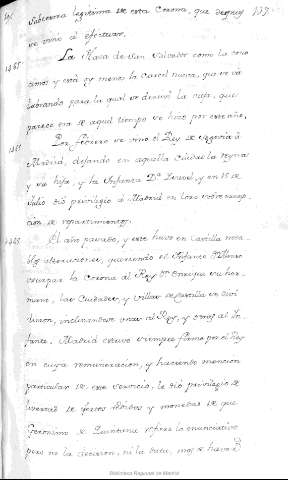 subcesora legitima de esta Corona, que despues 137.
se vino a efectuar.
1465 La Plaza de San Salvador como la cono
cimos y está oy menos la Carcel nueva, que se vá
labrando para la qual se derrivó la vieja, que
parece era de aquel tiempo se hizo por este año.
Por febrero se vino el Rey de Segovia á
Madrid, dejando en aquella Ciudad la Reyna
y su hija, y la Infanta Dª Isavel, y en 15 de
Julio dió privilegio á Madrid en
cion de repartimientos.
El año pasado, y este huvo en Castilla nota
bles alteraciones, queriendo el Infante D. Alonso
usurpar la Corona al Rey Dn. Enrique su her
mano, las Ciudades, y Villas de Castilla se divi
dieron, inclinandose unas al Rey, y otras al In
fante. Madrid estuvo siempre firme por el Rey
en cuya remuneracion, y haciendo mencion
particular de este servicio, le dió privilegio de
libertad de
Geronimo de Quintana refiere lo enunciativo
pero no la decision, ni la data, mas se hará
Biblioteca Regional de Madrid